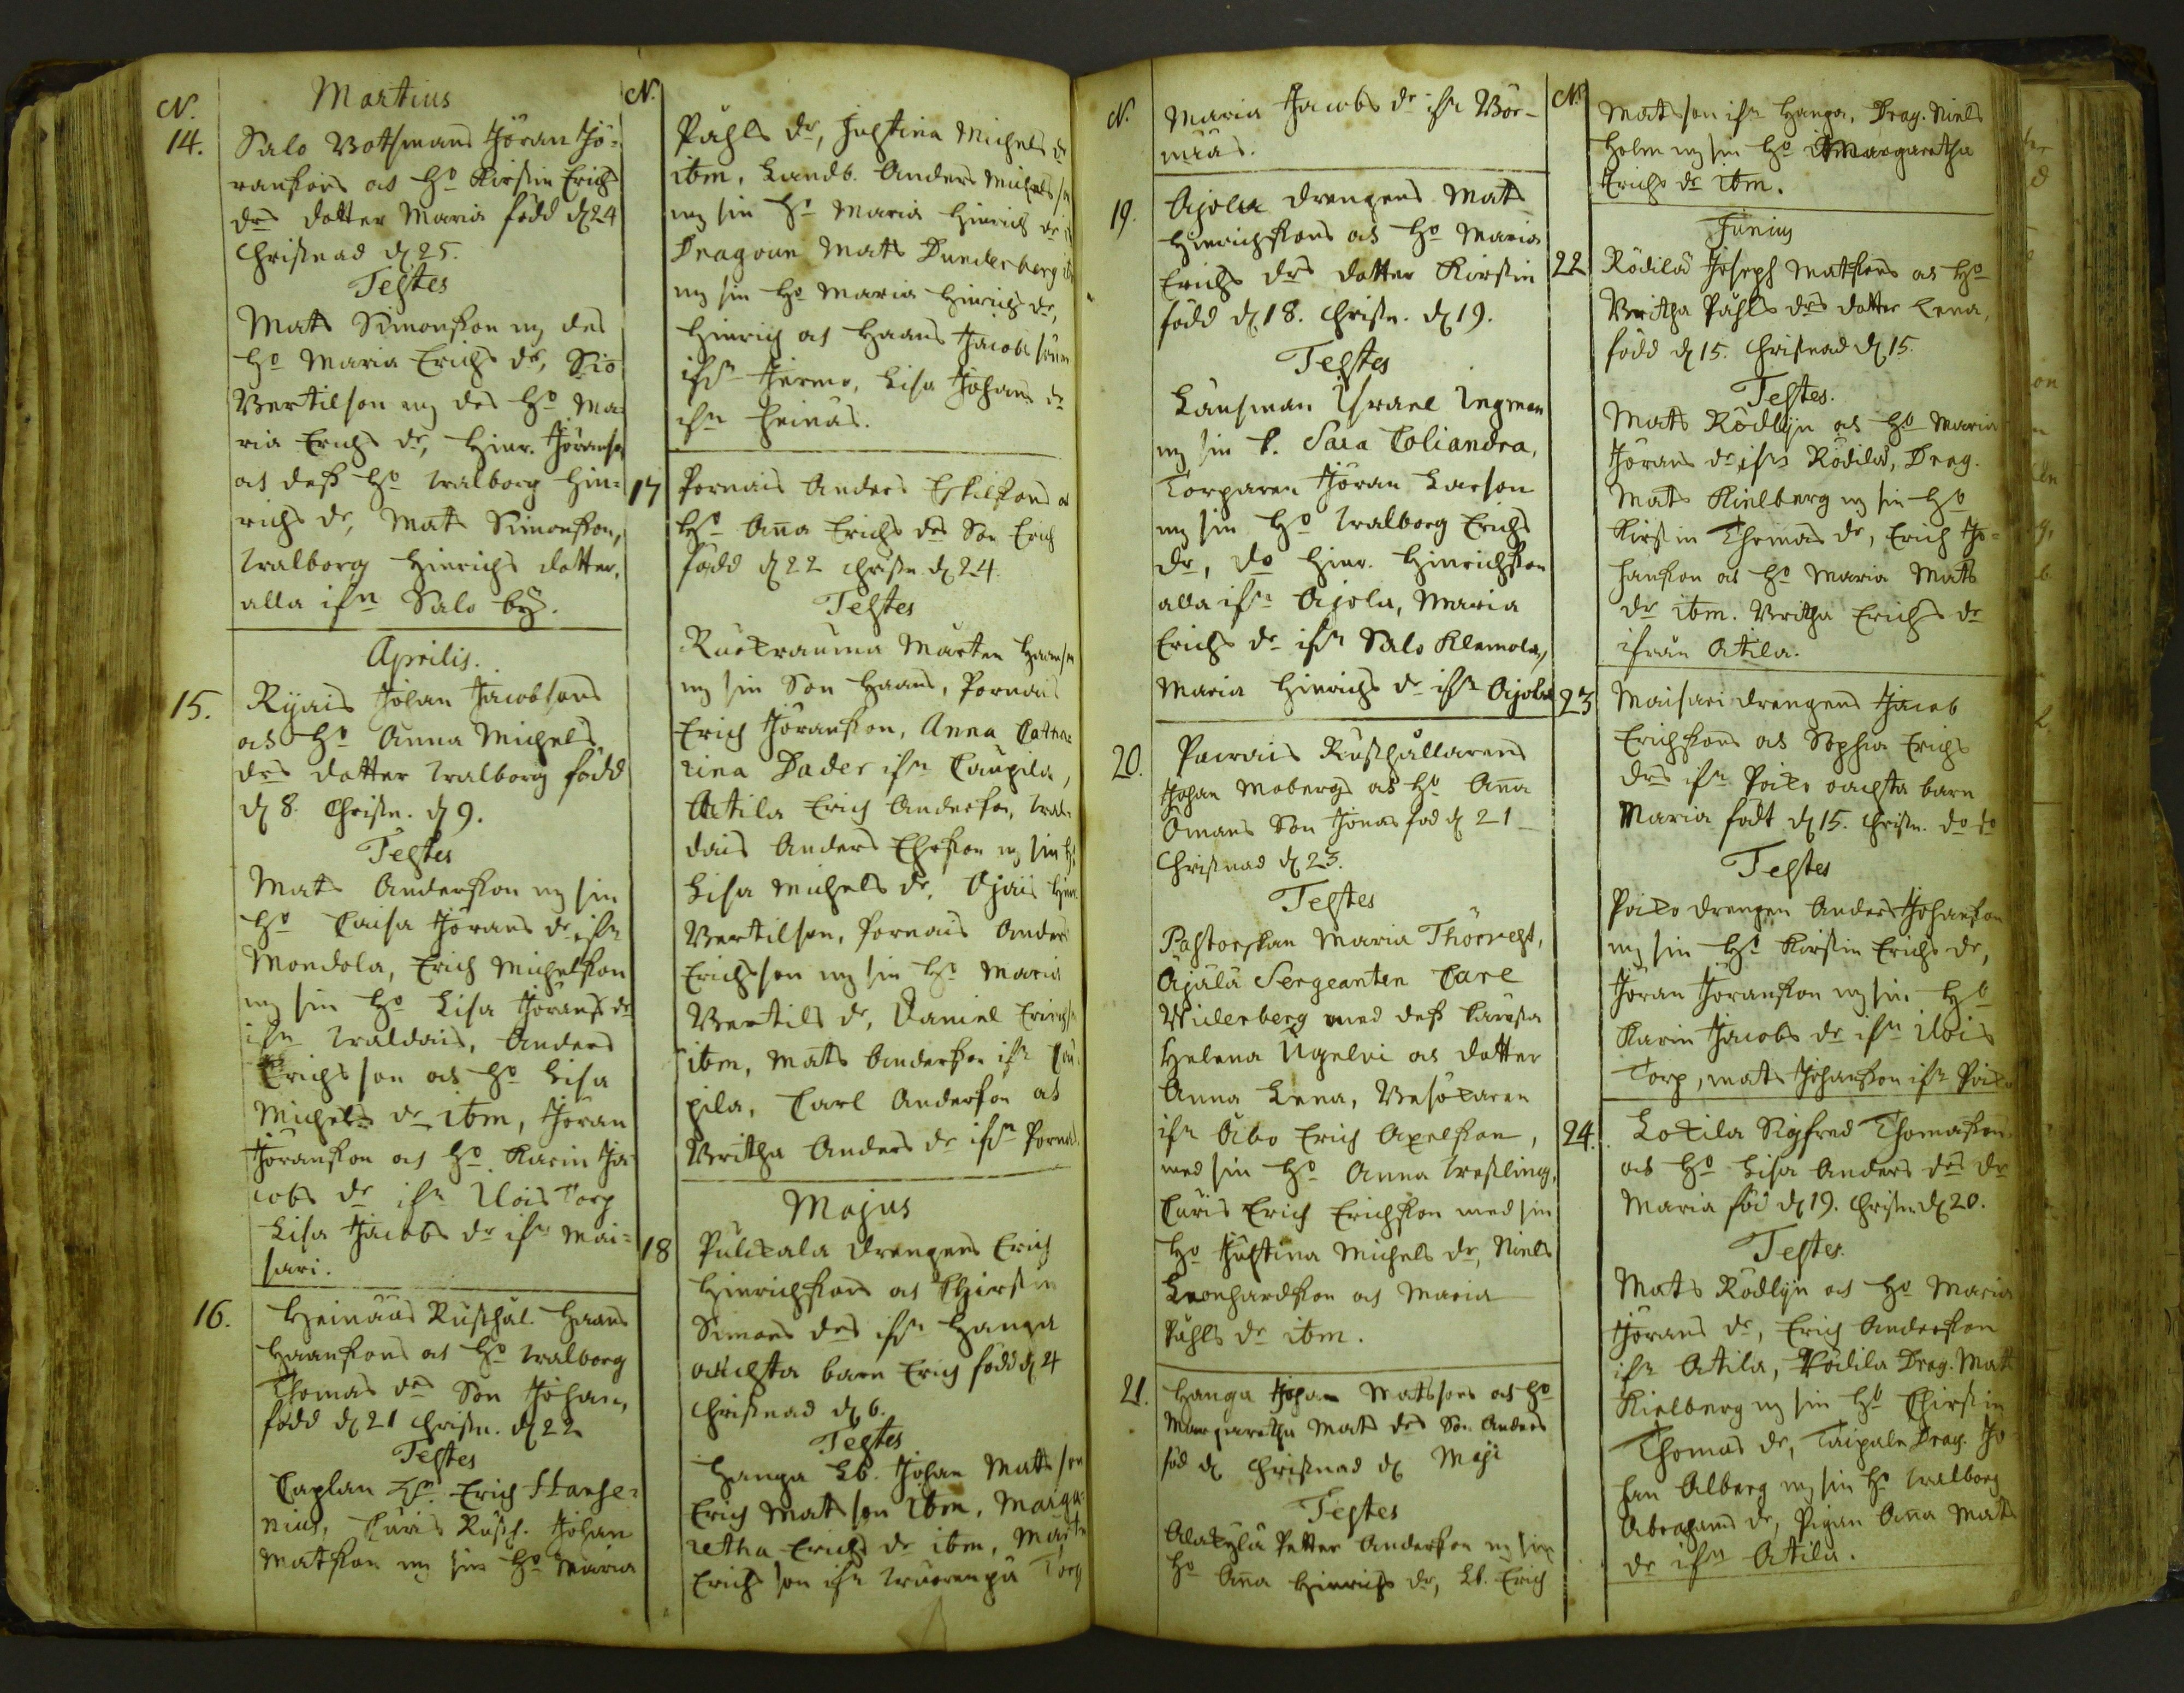 N. Martius
14. Salo Botsmans Jöran Jö-
ransons os Ho Kirstin Erichs
drs dotter Maria född d 24
Christnad d 25.
Testes
Mats Simonson mz des
Ho Maria Erichs dr,
Bertilson mz des Ho Ma-
ria Erichs dr, Hinr. Jöranson
os dess Ho Walborg Hin-
richs dr, Mats Simonson,
Walborg Hinrichs dotter,
alla ifrn Salo by.
Aprilis.
15. Ryais Johan Jacobsons
os Ho Anna Michels
drs dotter Walborg född
d 8. Christn. d 9.
Testes
Mats Anderson mz sin
Ho Caisa Jörans dr ifrn
Mondola, Erich Michelson
mz sin Ho Lisa Jörans dr
ifrn Waldais, Anders
Erichsson os Ho Lisa
Michels dr ibm, Jöran
Jöranson os Ho Karin Ja-
cobs dr ifrn Uois Torp
Lisa Jacobs dr ifrn Mai-
sari.
16. Heinäas Rusthål. Haans
Haansons os Ho Walborg
Thomas drs Son Johan,
född d 21 Christn. d 22
Testes
Caplan Hr Erich
nius, Curis Rusth. Johan
Matson mz sin Ho Maria
N.
Påhls dr, Justina Michels dr
ibm, Landb. Anders Michelsson
mz sin Ho Maria Hinrich dr
Dragoun Mats Dunderberg ib
mz sin Ho Maria Hinrichs dr,
Hinrich os Haans Jacobs
ifrn Jermo, Lisa Johans dr
ifrn Heinäs.
17 Pornais Anders Eskilsons os
Ho Aña Erichs drs Son Erich
född d 22 christn d 24.
Testes
Ruokrauma Mårten Haanson
mz sin Son Haans, Pornais
Erich Jöranson, Anna Catha-
rina Dader ifrn Caupila,
Attila Erich Anderson, Wal-
dais Anders mz sin Ho
Lisa Michels dr, Ojais Hinr
Bertilson, Pornais Anders
Erichsson mz sin Ho Maria
Bertils dr, Daniel
ibm, Mats Anderson ifrn Cau-
pila, Carl Anderson os
Britha Anders dr ifrn Porna
Majus
18 Pulckala drengens Erich
Hinrichsons os Chirstin
Simons drs ifrn Hanga
oächta barn Erich född d 4
Christnad d 6.
Testes
Hanga Lb. Johan Matsson
Erich Matsson ibm, Marga-
retha Erichs dr ibm, Mårtn
Erichsson ifrn Torp
N. Maria Jacobs dr ifrn Bör-
19. Ajola drengens Mats
Hinrichsons os Ho Maria
Erichs drs dotter Kirstin
född d 18. Christn. d 19.
Testes
Länsman Israel Ingman
mz sin k. Sara Coliandra,
Torparen Jöran Larson
mz sin Ho Walborg Erichs
dr, do Hinr. Hinrichson
alla ifrn Ajola, Maria
Erichs dr ifrn Salo Klemola,
Maria Hinrichs dr ifrn Ajola
20. Pairais Rusthållarens
Johan Mobergs os Ho Aña
Ömans Son Jonas föd d 21
Christnad d 23.
Testes
Pastorskan Maria Thorvest,
Äjälä Sergeanten Carl
Widerberg med dess käresta
Helena Ugelvi os dotter
Anna Lena, Besökaren
ifrn Åbo Erich Axelson,
med sin Ho Anna Wesling,
Curis Erich Erichson med sin
Ho Justina Michels dr, Niels
Leonhardson os Maria
Påhls dr ibm.
21. Hanga Johan Matssons os Ho
Margaretha Mats drs Son Anders
föd d Christnad d Maji
Testes
Alakylä Petter Anderson mz sin
Ho Aña Hinrichs dr, Lb. Erich
N. Matsson ifrn Hanga, Drag. Niels
Holm mz sin Ho Margaretha
Erichs dr ibm.
Junius
22 Rödilä Joseph Matsons os Ho
Britha Påhls drs dotter Lena,
född d 15. Christnad d 15.
Testes.
Mats Rödlijn os Ho Maria
Jörans dr ifrn Rödilä, Drag.
Mats Kielberg mz sin Ho
Kirstin Thomas dr, Erich Jo-
hanson os Ho Maria Mats
dr ibm. Britha Erichs dr
ifrån Atila.
23 Maisari drengens Jacob
Erichsons os Sophia Erichs
drs ifrn Poiko oächta barn
Maria födt d 15. Christn. do do
Testes
Poiko drengen Anders Johanson
mz sin Ho Kirstin Erichs dr,
Jöran Jöranson mz sin Ho
Karin Jacobs dr ifrn Uois
Torp, Mats Johanson ifrn Poiko
24. Lokila Sigfred Thomasons
os Ho Lisa Anders drs dr
Maria föd d 19. Christn d 20.
Testes.
Mats Rödlijn os Ho Maria
Jörans dr, Erich Anderson
ifrn Atila, Rödila Drag. Mats
Kielberg mz sin Ho Chirstin
Thomas dr, Taipale Drag. Jo-
han Alberg mz sin Ho Walborg
Abrahams dr, Pigan Aña Mats
dr ifrn Atila.